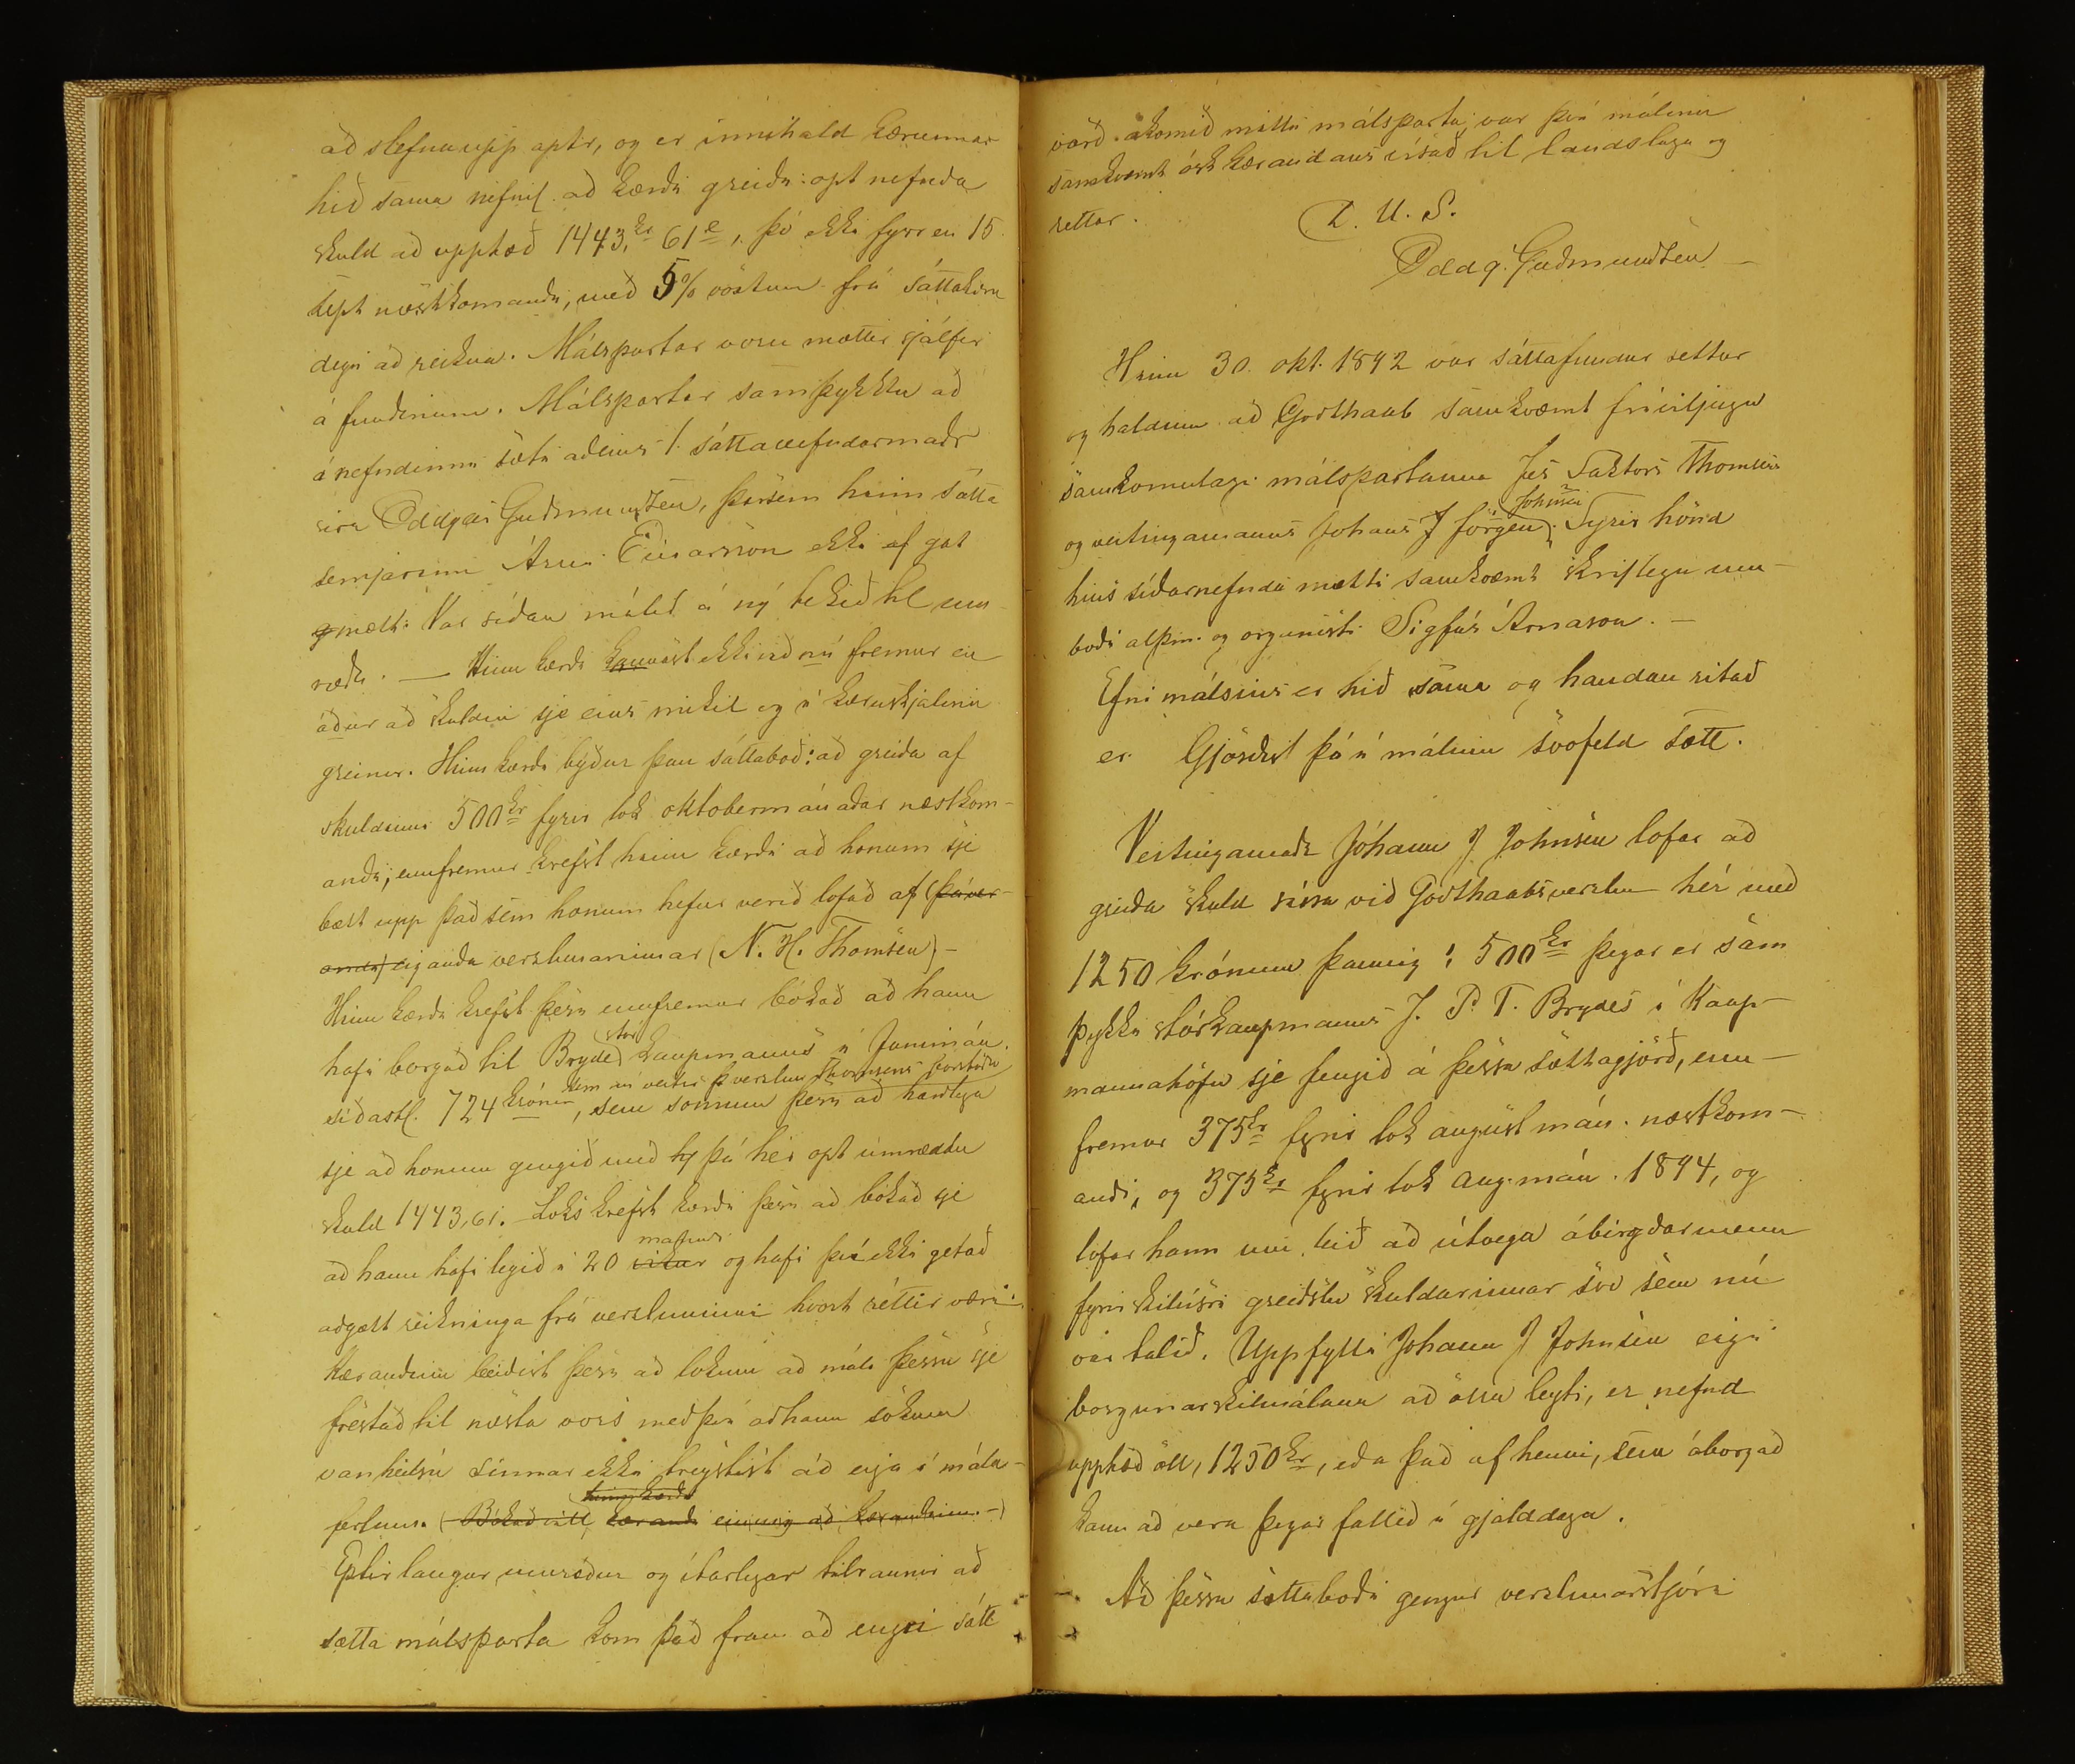 að stefna upp aptr, og er innihald kærunnar
hið sama nefnil. að kærði greiði opt nefnda
skuld að upphæð 1443,kr 61e, þó ekki fyrr en 15.
sept næstkomandi, með 5% vöxtum frá sáttakæru
degi að reikna. Málspartar voru mættir sjálfir
á fundinum. Málspartar samþykktu að
í nefndinni sæti aðeins 1. sáttanefndarmaðr
síra Oddgeir Guðmundsen, þarsem hinn sátta
semjarinn Árni Einarsson ekki af gat
mætt. Var síðan málið á ný tekið til um-
ræðu. — Hinn kærði kannast ekki við nú fremur en
áður að skuldin sje eins mikil og í kæruskjalinu
greinir. Hinn kærði býður þau sáttaboð: að greiða af
skuldinni 500kr fyrir lok oktobermánaðar næstkom-
andi; ennfremur krefst hinn kærði að honum sje
bætt upp það sem honum hefur verið lofað af (þáver-
andi) eiganda verzlunarinnar (N. H. Thomsen) -
Hinn kærði krefst þess ennfremur bókað að hann
hafi borgað til Brydes stórkaupmanns í Junimán.
síðastl. 724 krónur, sem nú veitir þ verzlun Thomsens forstöðu, sem sönnun þess að harðlega
sje að honum gengið með þá hér opt umræddu
skuld 1443,61. - Loks krefst kærði þess að bókað sje
að hann hafi legið í 20 vikur og hafi því ekki getað
aðgætt reikninga frá verzluninni hvort réttir væri.
Kærandinn beiðist þess að lokum að máli þessu sje
frestað til næsta vors með því að hann sökum
vanheilsu sinnar ekki treystist að eiga í mála-
ferlum. (Bókað vill hinn kærði kærandi einnig að kærandinn -)
Eptir langar umræður og ítarlegar tilraunir að
sætta málsparta kom það fram að engri sátt
varð ákomið milli málsparta; var því málinu
samkvæmt ósk kærandans vísað til landslaga og
rettar.
D. U. S.
Oddg. Guðmundsen -
Hinn 30. okt. 1892 var sáttafundur settur
og haldinn að Godthaab samkvæmt fríviljugu
samkomulagi málspartanna Jes Faktors Thomsens
og veitingamanns Johans J Jörgen Johnsen. Fyrir hönd
hins síðarnefnda mætti samkvæmt skriflegu um-
boði alþm. og organisti Sigfús Árnason. -
Efni málsins er hið sama og handan ritað
er. Gjörðist þá í málinu svofeld sætt.
Veitingamaðr Jóhann J Johnsen lofar að
greiða skuld sína við Godthaabsverzlun hér með
1250 krónum þannig: 500kr þegar er sam
þykki stórkaupmanns J. P. T. Brydes í Kaup-
mannahöfn sje fengið á þessa sáttagjörð, enn-
fremur 375kr fyrir lok august mán. næstkom-
andi, og 375kr fyrir lok aug. mán. 1894, og
lofar hann um leið að útvega ábirgðarmenn
fyrir skilvísri greiðslu skuldarinnar svo sem nú
var talið. Uppfylli Johann J Johnsen eigi
borgunarskilmálana að öllu leyti, er nefnd
upphæð öll, 1250kr, eða það af henni, sem óborgað
kann að vera þegar fallið í gjalddaga.
Að þessu sáttaboði gengur verzlunarstjóri